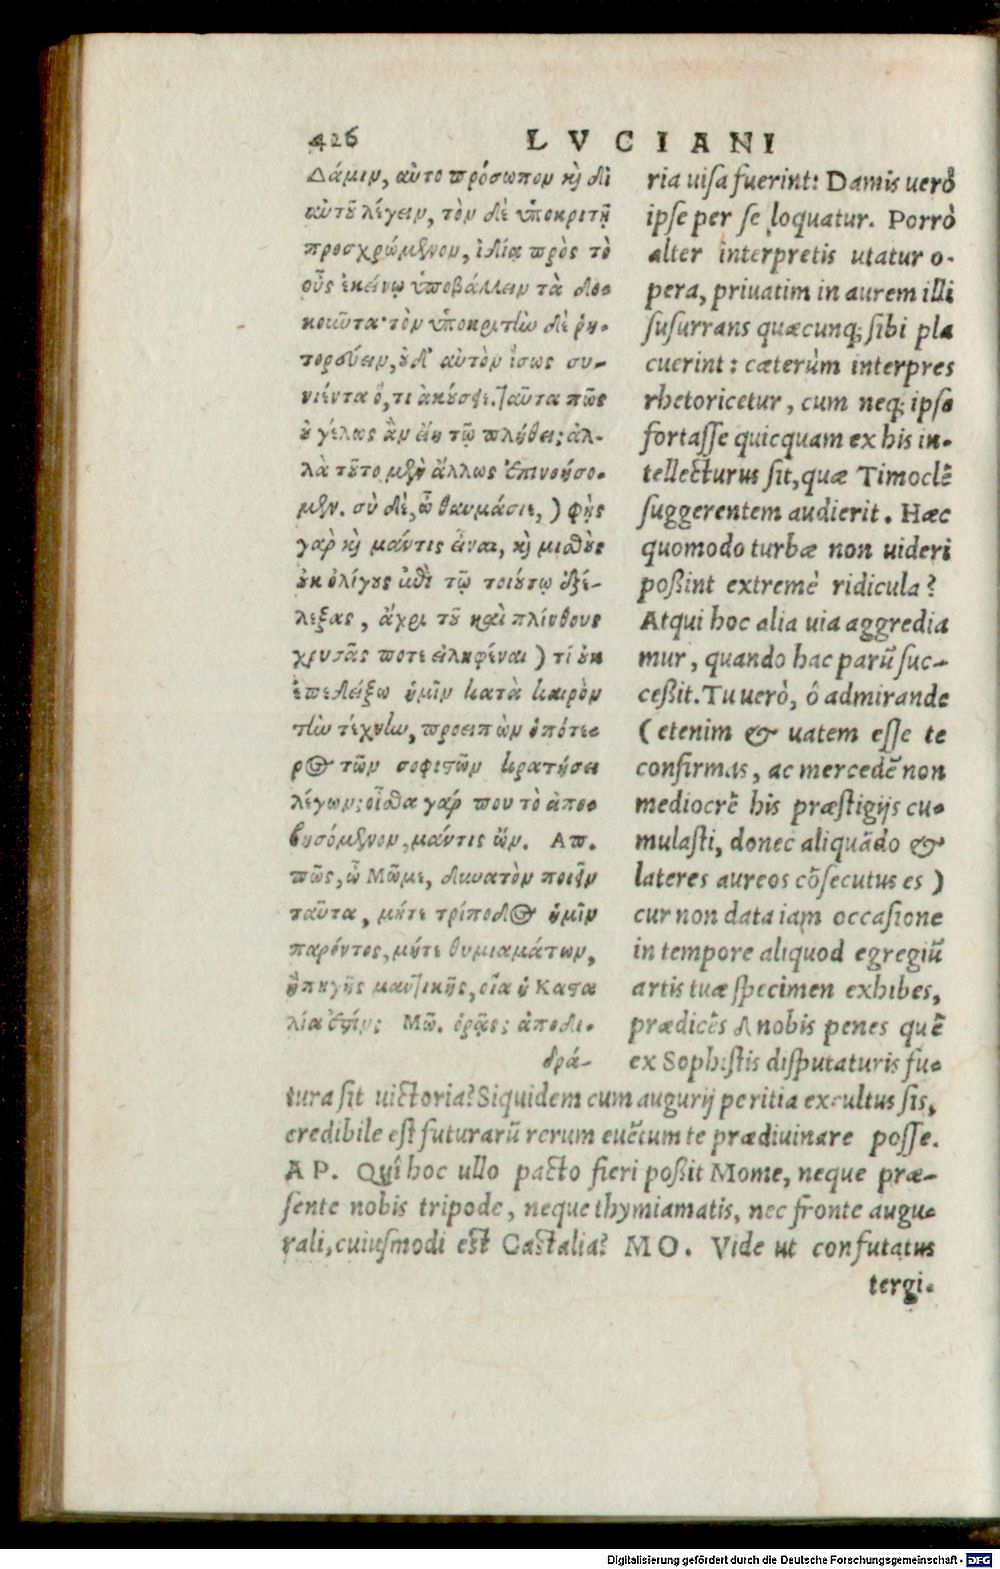 426 LVCIANI
Δάμιν, αὐτοπρόσωπον καὶ δι'
αὑτοῦ λέγειν, τὸν δὲ ὑποκριτῇ
προσχρώμενον, ἰδίᾳ πρὸς τὸ
οὖς ἐκείνῳ ὑποβάλλειν τὰ δο-
κοῦντα· τὸν ὑποκριτὴν δὲ ῥη-
τορεύειν, οὐδ' αὐτὸν ἴσως συ-
νιέντα ὅ, τι ἀκούσῃ. ταῦτα πῶς
οὐ γέλως ἂν εἴη τῷ πλήθει; ἀλ-
λὰ τοῦτο μὲν ἄλλως ἐπινοήσο-
μεν. σὺ δὲ, ὦ θαυμάσιε, ) φῂς
γὰρ καὶ μάντις εἶναι, καὶ μισθοὺς
οὐκ ὀλίγους ἐπὶ τῷ τοιούτῳ ἐξέ-
λεξας, ἄχρι τοῦ καὶ πλίνθους
χρυσᾶς ποτε εἰληφέναι ) τί οὐκ
ἐπεδείξω ἡμῖν κατὰ καιρὸν
τὴν τέχνην, προειπὼν ὁπότε-
ρος τῶν σοφιστῶν κρατήσει
λέγων; οἶσθα γάρ που τὸ ἀπο-
βησόμενον, μάντις ὤν. Απ.
πῶς, ὦ Μῶμε, δυνατὸν ποιεῖν
ταῦτα, μήτε τρίποδος ἡμῖν
παρόντος, μήτε θυμιαμάτων,
ἢ πηγῆς μαντικῆς, οἵα ἡ Κασταλία
ἐστίν; Μῶ. ὁρᾷς; ἀποδι-
δρά-
ria uisa fuerint: Damis uerò
ipse per se loquatur. Porrò
alter interpretis utatur o-
pera, priuatim in aurem illi
susurrans quæcunq; sibi pla
cuerint: cæterùm interpres
rhetoricetur, cum neq; ipse
fortasse quicquam ex his in-
tellecturus sit, quæ Timoclẽ
suggerentem audierit. Hæc
quomodo turbæ non uideri
poßint extremè ridicula?
Atqui hoc alia uia aggredia
mur, quando hac parũ suc-
ceßit. Tu uerò, ô admirande
( etenim & uatem esse te
confirmas, ac mercedẽ non
mediocrẽ his præstigijs cu-
mulasti, donec aliquãdo &
lateres aureos cõsecutus es )
cur non data iam occasione
in tempore aliquod egregiũ
artis tuæ specimen exhibes,
prædicẽs nobis penes quẽ
ex Sophistis disputaturis fu-
tura sit uictoria? Siquidem cum augurij peritia excultus sis,
credibile est futurarũ rerum euẽtum te prædiuinare posse.
AP. Quî hoc ullo pacto fieri poßit Mome, neque præ-
sente nobis tripode, neque thymiamatis, nec fronte augu-
rali, cuiusmodi est Castalia? MO. Vide ut confutatus
tergi-
Digitalisierung gefördert durch die Deutsche Forschungsgemeinschaft - DFG